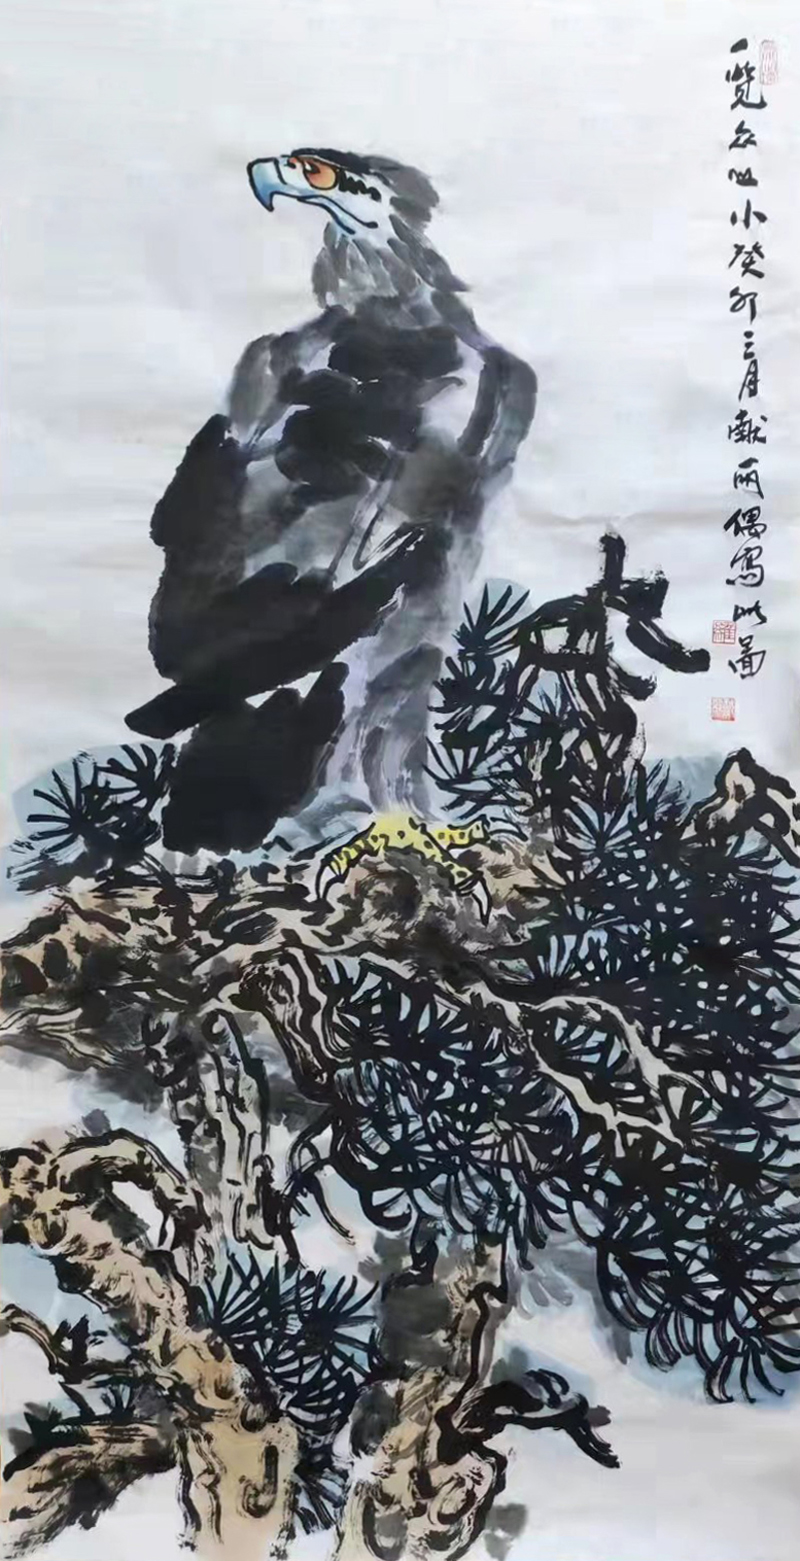 一览众山小癸卯三月献雨偶写此图